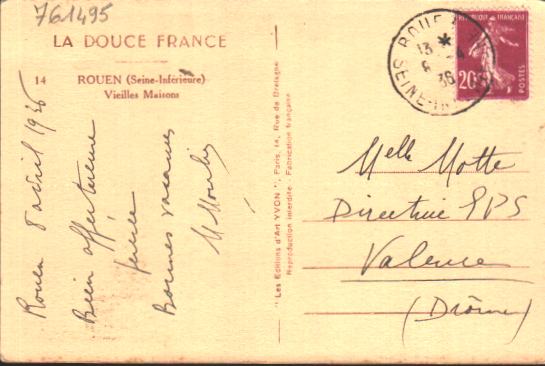 761495
LA DOUCE FRANCE
14 ROUEN (Seine-Inférieure)
Vieilles Maisons
Rouen 8 avril 1936
Bien affectueuse
pensée
Bonnes vacances
M Moulin
"Les Editions d'Art YVON", Paris, 14, Rue de Bretagne
Reproduction interdite - Fabrication française
ROUEN
SEINE-INF
13 *
8 -4
36
REPUBLIQUE FRANÇAISE
20c
POSTES
Melle Motte
Directrice EPS
Valence
(Drôme)